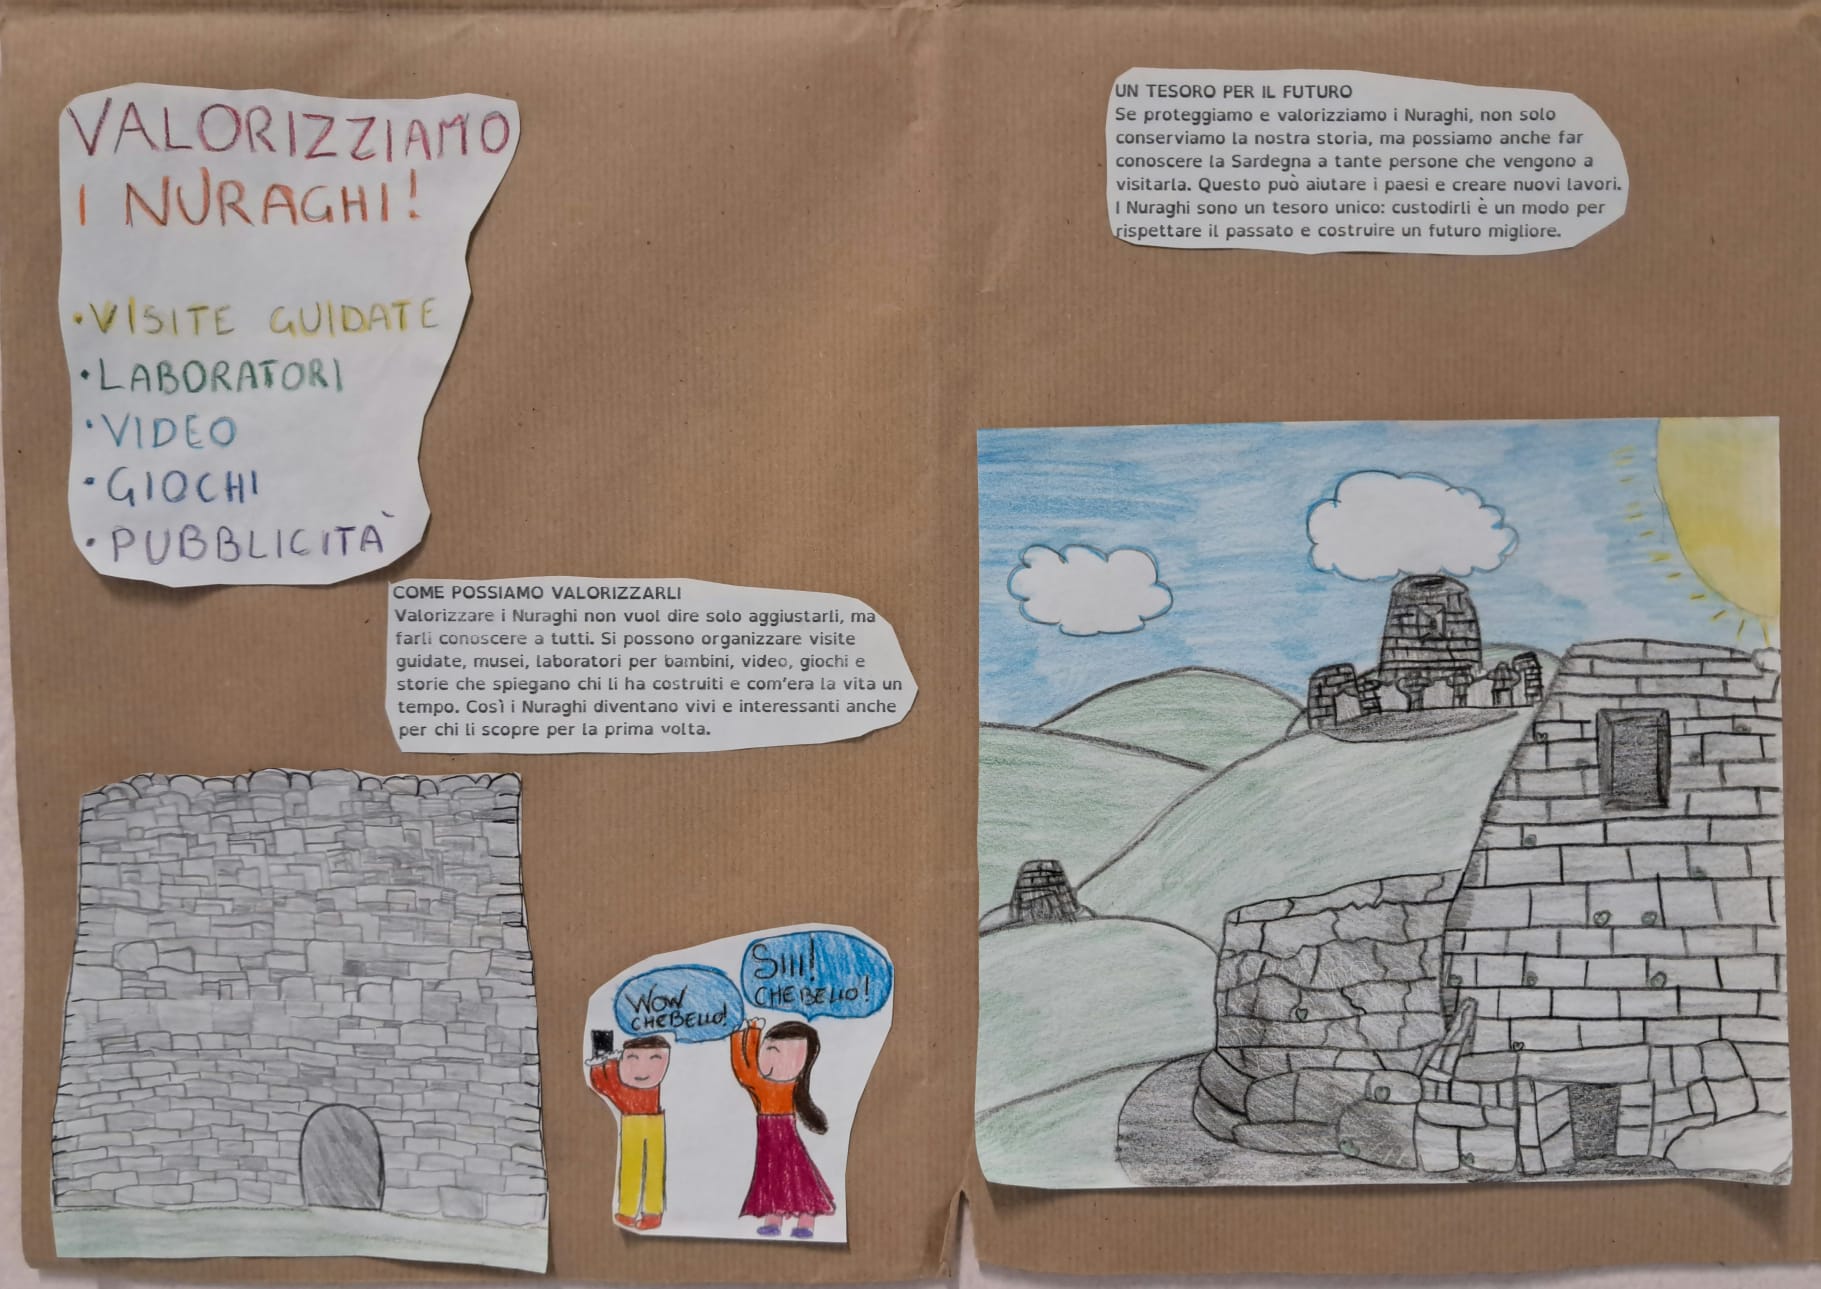 VALORIZZIAMO
I NURAGHI!
• VISITE GUIDATE
• LABORATORI
• VIDEO
• GIOCHI
• PUBBLICITÀ
COME POSSIAMO VALORIZZARLI
Valorizzare i Nuraghi non vuol dire solo aggiustarli, ma
farli conoscere a tutti. Si possono organizzare visite
guidate, musei, laboratori per bambini, video, giochi e
storie che spiegano chi li ha costruiti e com'era la vita un
tempo. Così i Nuraghi diventano vivi e interessanti anche
per chi li scopre per la prima volta.
WOW
CHE BELLO!
SIII!
CHE BELLO!
UN TESORO PER IL FUTURO
Se proteggiamo e valorizziamo i Nuraghi, non solo
conserviamo la nostra storia, ma possiamo anche far
conoscere la Sardegna a tante persone che vengono a
visitarla. Questo può aiutare i paesi e creare nuovi lavori.
I Nuraghi sono un tesoro unico: custodirli è un modo per
rispettare il passato e costruire un futuro migliore.